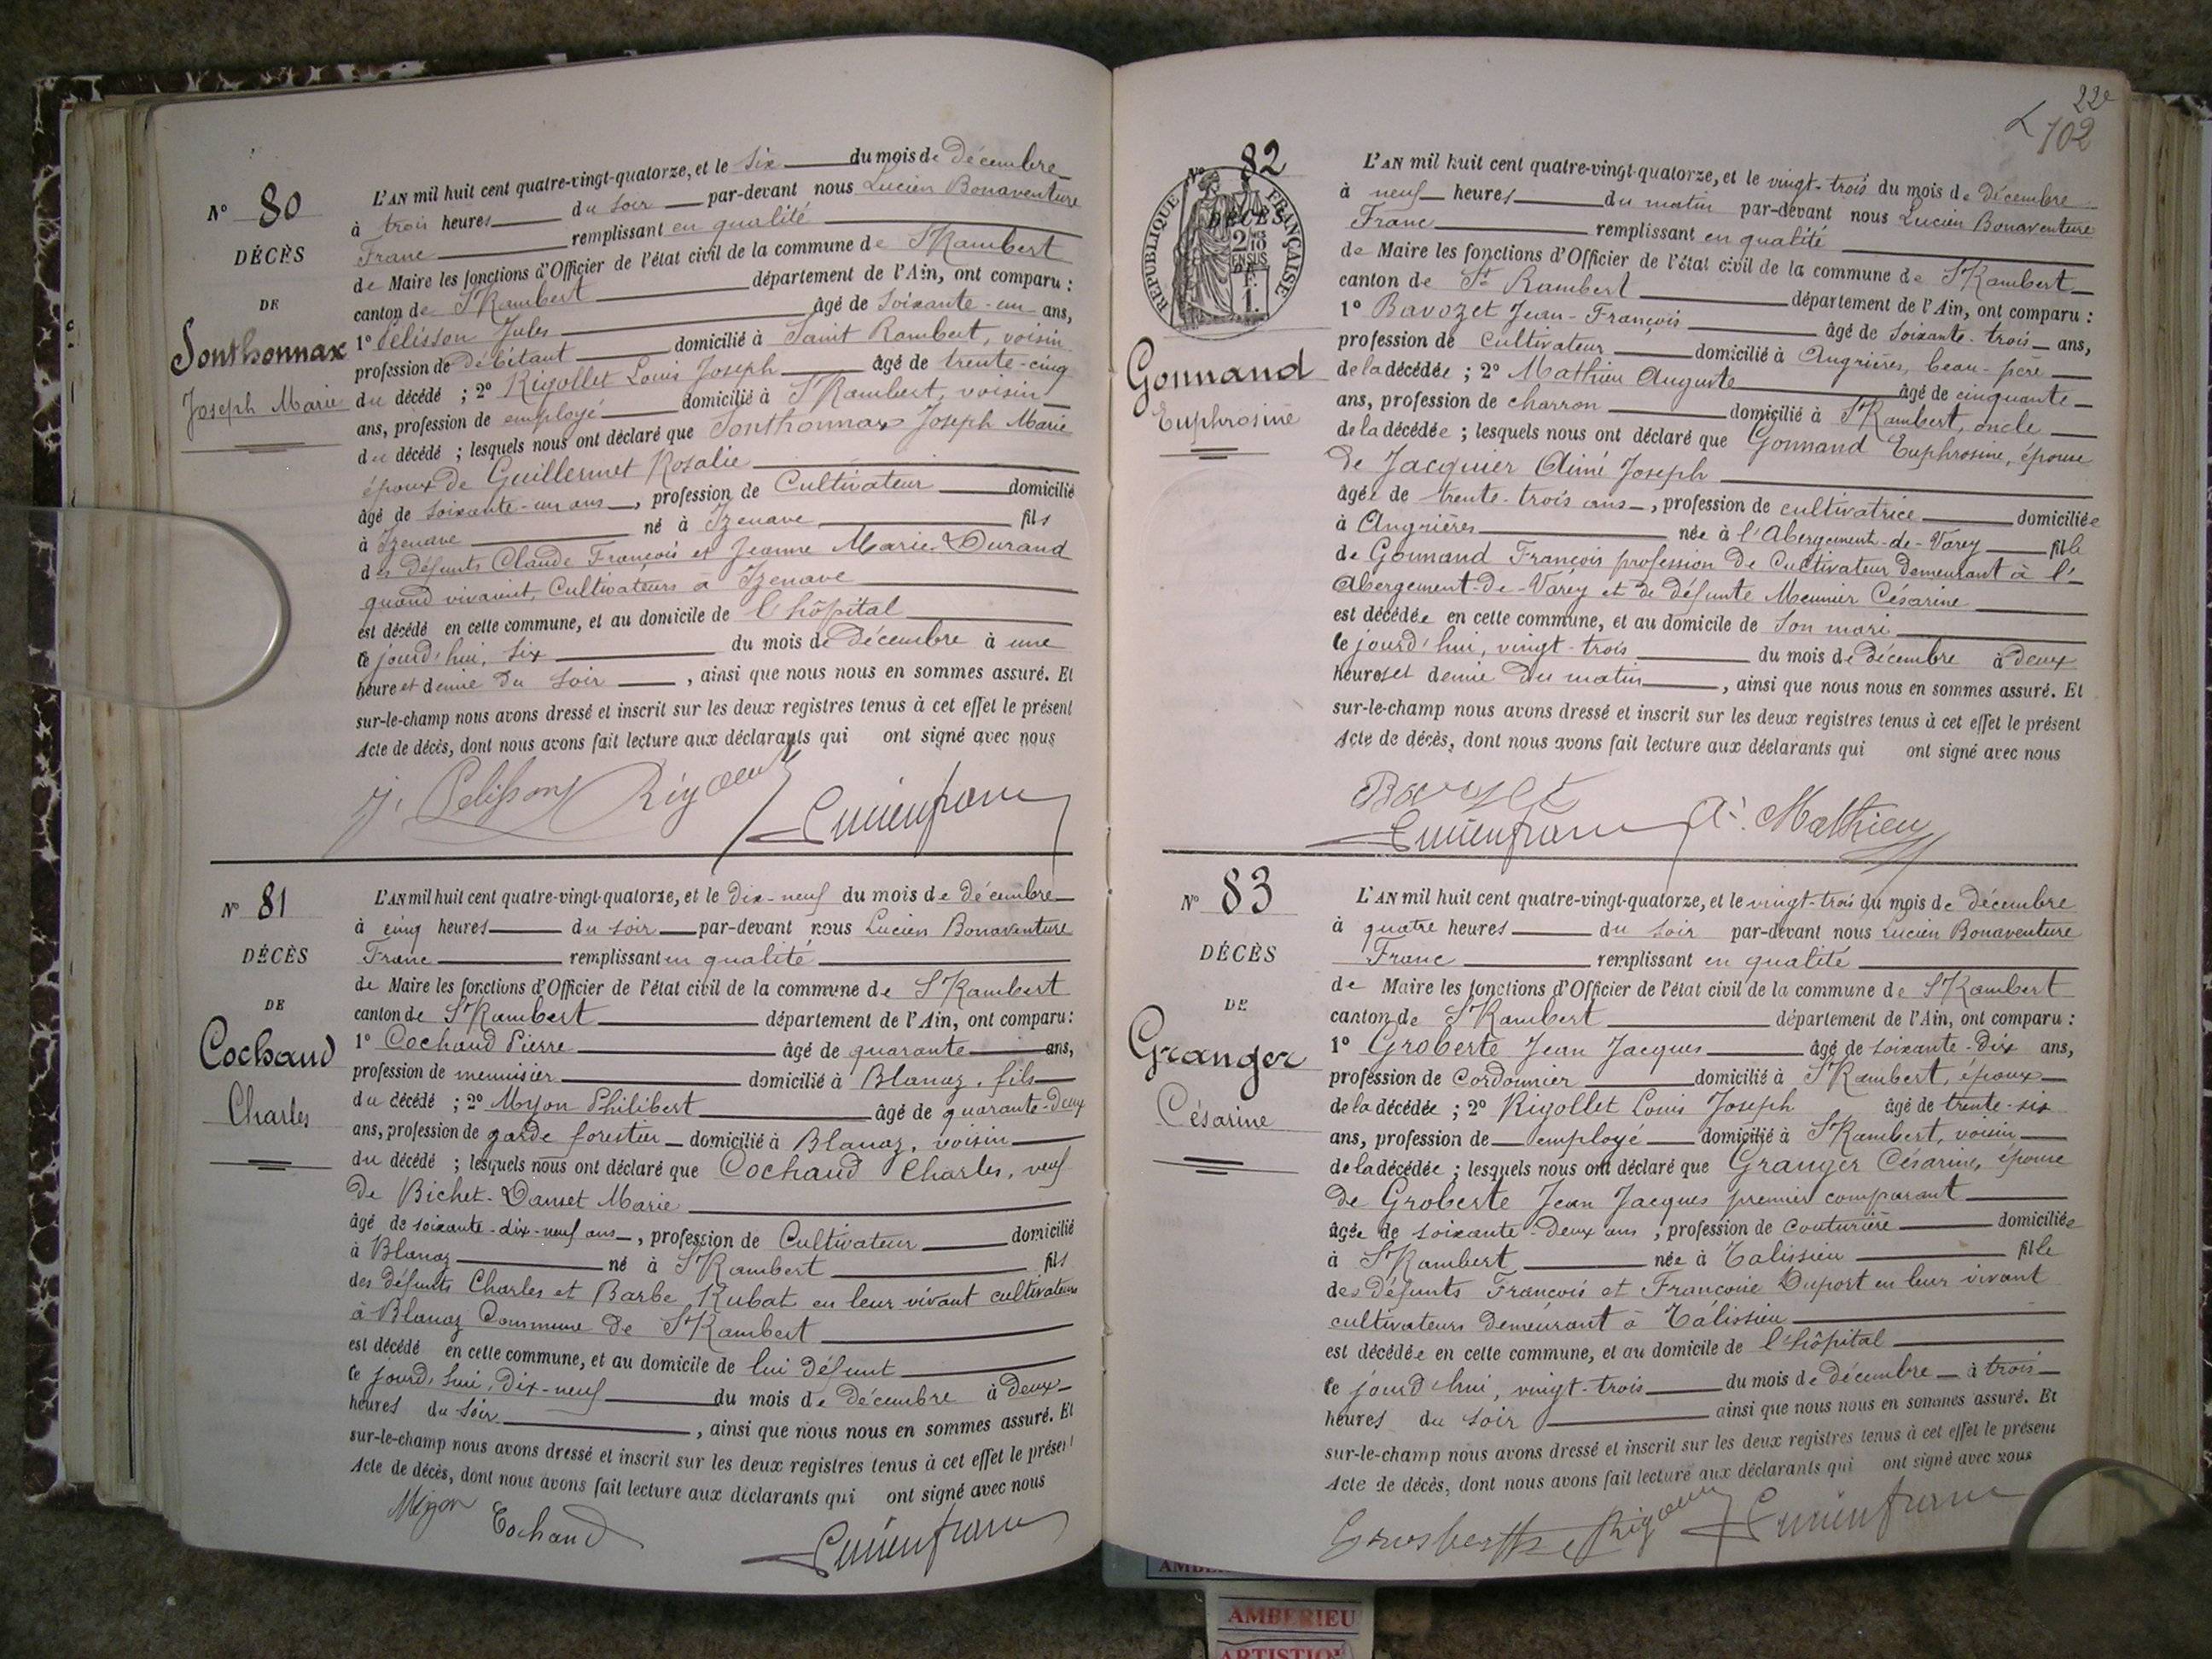 N° 80
DÉCÈS
DE
Sonthonnax
Joseph Marie
L'AN mil huit cent quatre-vingt-quatorze, et le six du mois de Décembre
à trois heures du soir par-devant nous Lucien Bonaventure
Franc remplissant en qualité
de Maire les fonctions d'Officier de l'état civil de la commune de St Rambert
canton de St Rambert département de l'Ain, ont comparu :
1° Pélisson Jules âgé de soixante-un ans,
profession de débitant domicilié à Saint Rambert, voisin
du décédé ; 2° Rigollet Louis Joseph âgé de trente-cinq
ans, profession de employé domicilié à St Rambert, voisin
du décédé ; lesquels nous ont déclaré que Sonthonnax Joseph Marie
époux de Guillermet Rosalie
âgé de soixante-un ans, profession de Cultivateur domicilié
à Izenave né à Izenave fils
des défunts Claude François et Jeanne Marie Durand
quand vivaient, Cultivateurs à Izenave
est décédé en cette commune, et au domicile de l'hôpital
le jourd'hui, six du mois de Décembre à une
heure et demie du soir, ainsi que nous nous en sommes assuré. Et
sur-le-champ nous avons dressé et inscrit sur les deux registres tenus à cet effet le présent
Acte de décès, dont nous avons fait lecture aux déclarants qui ont signé avec nous
J. Pelisson Rigollet Lucien franc
N° 81
DÉCÈS
DE
Cochaud
Charles
L'AN mil huit cent quatre-vingt-quatorze, et le dix-neuf du mois de décembre
à cinq heures du soir par-devant nous Lucien Bonaventure
Franc remplissant en qualité
de Maire les fonctions d'Officier de l'état civil de la commune de St Rambert
canton de St Rambert département de l'Ain, ont comparu :
1° Cochaud Pierre âgé de quarante ans,
profession de menuisier domicilié à Blanaz, fils
du décédé ; 2° Myon Philibert âgé de quarante-deux
ans, profession de garde forestier domicilié à Blanaz, voisin
du décédé ; lesquels nous ont déclaré que Cochaud Charles, veuf
de Bichet-Danset Marie
âgé de soixante-dix-neuf ans, profession de Cultivateur domicilié
à Blanaz né à St Rambert fils
des défunts Charles et Barbe Rubat en leur vivant cultivateurs
à Blanaz Commune de St Rambert
est décédé en cette commune, et au domicile de lui défunt
le jourd'hui, dix-neuf du mois de décembre à deux
heures du soir, ainsi que nous nous en sommes assuré. Et
sur-le-champ nous avons dressé et inscrit sur les deux registres tenus à cet effet le présent
Acte de décès, dont nous avons fait lecture aux déclarants qui ont signé avec nous
Myon Cochaud Lucien franc
22e
102
N° 82
RÉPUBLIQUE FRANÇAISE
DÉCÈS
2/10 EN SUS
1 F.
Gonnand
Euphrosine
L'AN mil huit cent quatre-vingt-quatorze, et le vingt-trois du mois de Décembre
à neuf heures du matin par-devant nous Lucien Bonaventure
Franc remplissant en qualité
de Maire les fonctions d'Officier de l'état civil de la commune de St Rambert
canton de St Rambert département de l'Ain, ont comparu :
1° Bavozet Jean-François âgé de soixante-trois ans,
profession de Cultivateur domicilié à Angrières, beau-père
de la décédée ; 2° Mathieu Auguste âgé de cinquante
ans, profession de charron domicilié à St Rambert, oncle
de la décédée ; lesquels nous ont déclaré que Gonnand Euphrosine, épouse
de Jacquier Aimé Joseph
âgée de trente-trois ans, profession de cultivatrice domiciliée
à Angrières née à l'Abergement-de-Varey fille
de Gonnand François profession de Cultivateur demeurant à l'
Abergement-de-Varey et de défunte Meunier Césarine
est décédée en cette commune, et au domicile de son mari
le jourd'hui, vingt-trois du mois de décembre à deux
heures et demie du matin, ainsi que nous nous en sommes assuré. Et
sur-le-champ nous avons dressé et inscrit sur les deux registres tenus à cet effet le présent
Acte de décès, dont nous avons fait lecture aux déclarants qui ont signé avec nous
Bavozet
Lucien franc A. Mathieu
N° 83
DÉCÈS
DE
Granger
Césarine
L'AN mil huit cent quatre-vingt-quatorze, et le vingt-trois du mois de décembre
à quatre heures du soir par-devant nous Lucien Bonaventure
Franc remplissant en qualité
de Maire les fonctions d'Officier de l'état civil de la commune de St Rambert
canton de St Rambert département de l'Ain, ont comparu :
1° Groberte Jean Jacques âgé de soixante-dix ans,
profession de Cordonnier domicilié à St Rambert, époux
de la décédée ; 2° Rigollet Louis Joseph âgé de trente-six
ans, profession de employé domicilié à St Rambert, voisin
de la décédée ; lesquels nous ont déclaré que Granger Césarine, épouse
de Groberte Jean Jacques premier comparant
âgée de soixante-deux ans, profession de couturière domiciliée
à St Rambert née à Talissieu fille
des défunts François et Françoise Duport en leur vivant
cultivateurs demeurant à Talissieu
est décédée en cette commune, et au domicile de l'hôpital
le jourd'hui, vingt-trois du mois de décembre à trois
heures du soir ainsi que nous nous en sommes assuré. Et
sur-le-champ nous avons dressé et inscrit sur les deux registres tenus à cet effet le présent
Acte de décès, dont nous avons fait lecture aux déclarants qui ont signé avec nous
Rigollet Lucien franc
AMBERIEU
ARTISTIQ